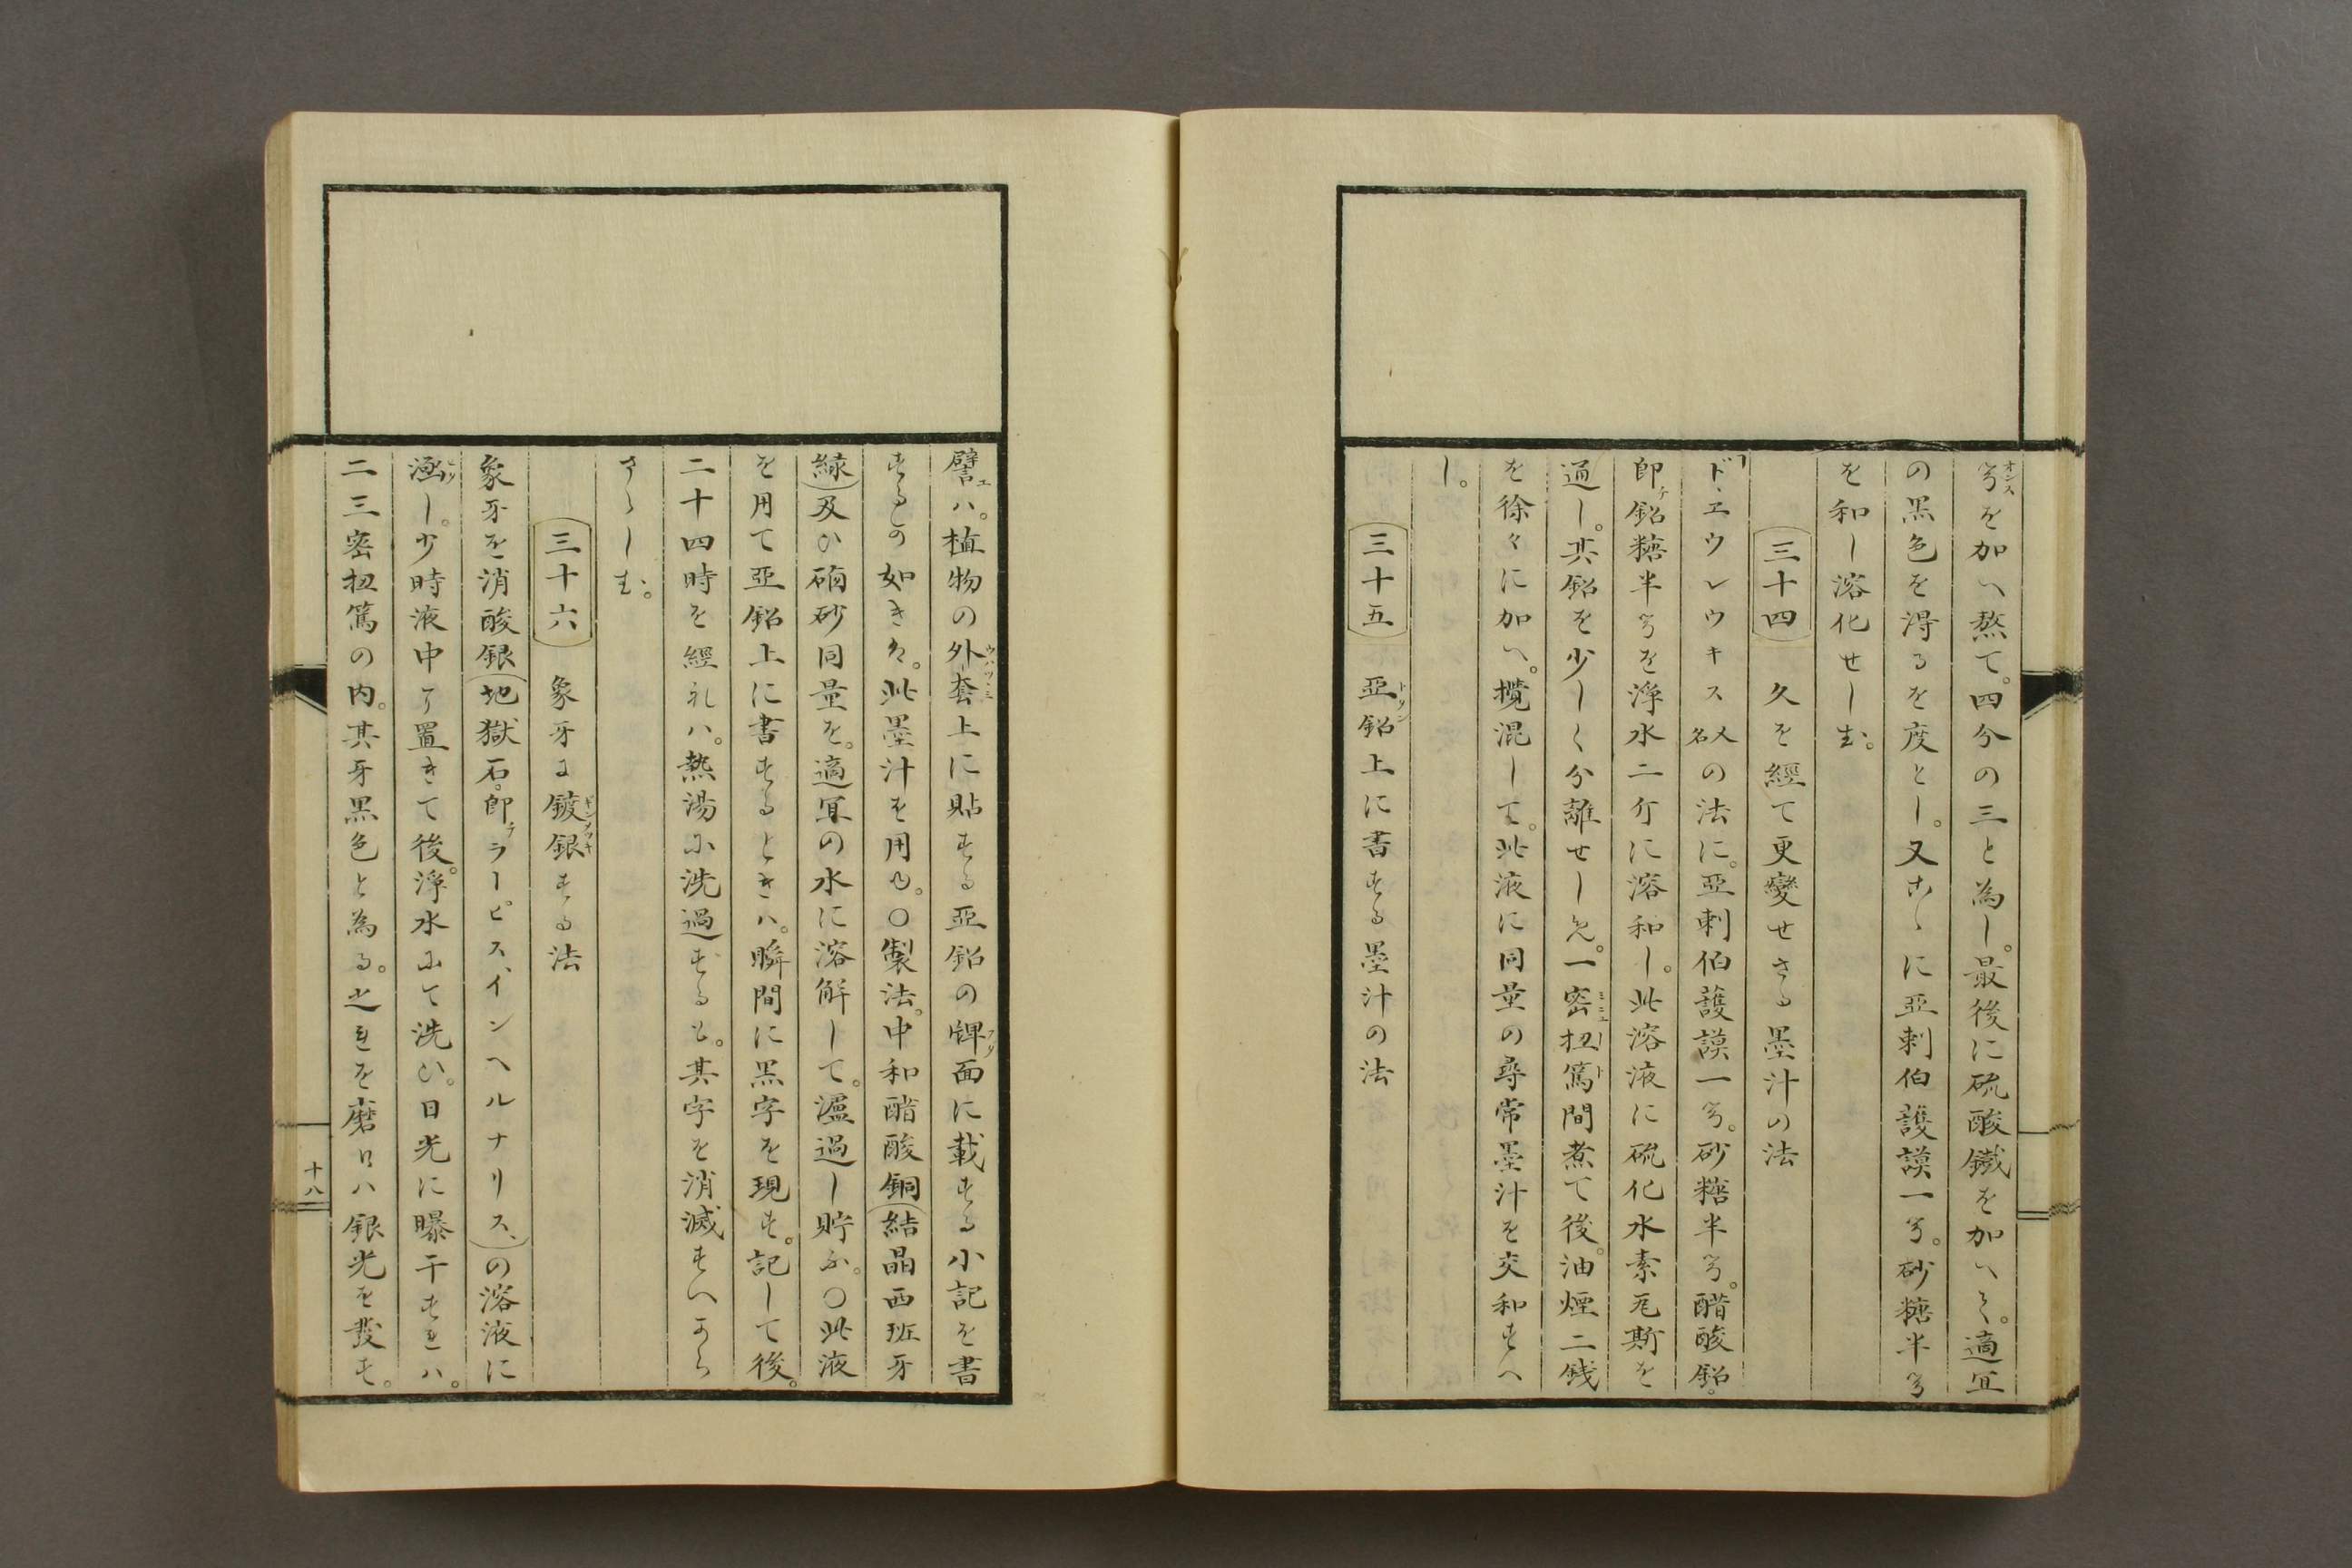 ヲンスを加へ熬て。四分の三と為し。最後に硫酸鐵を加へく。適宜
の黒色を得るを度とし。又こゝに亞剌伯護謨一ヲンス。砂糖半ヲンス
を和し溶化せしむ。
三十四　久を經て更變せさる墨汁の法
ド、エウレウキス人名の法に。亞剌伯護謨一ヲンス。砂糖半ヲンス。醋酸鉛。
即チ鉛糖半ヲンスを淨水二斤に溶和し。此溶液に硫化水素瓦斯を
通し。其鉛を少しく分離せしめ。一密扭篤間煮て後。油煙二銭
を徐々に加へ。攪混して。此液に同量の尋常墨汁を交和すへ
し。
三十五　亞鉛上に書する墨汁の法
譬ヘハ。植物の外套上に貼する亞鉛の牌面に載する小記を書
するの如きは。此墨汁を用ゆ。〇製法。中和醋酸銅（結晶西班牙
緑）及ひ硇砂同量を。適宜の水に溶解して。瀘過し貯ふ。〇此液
を用て亞鉛上に書するときハ。瞬間に黒字を現す。記して後。
二十四時を經れハ。熱湯に洗過するも。其字を消滅すへから
さらしむ。
三十六　象牙に鍍銀する法
象牙を消酸銀（地獄石。即チラーピス、インヘルナリス、）の溶液に
涵し。少時液中に置きて後。淨水にて洗ひ。日光に曝干すれハ。
二三密扭篤の内。其牙黒色と為る。之を磨けハ銀光を發す。
十八